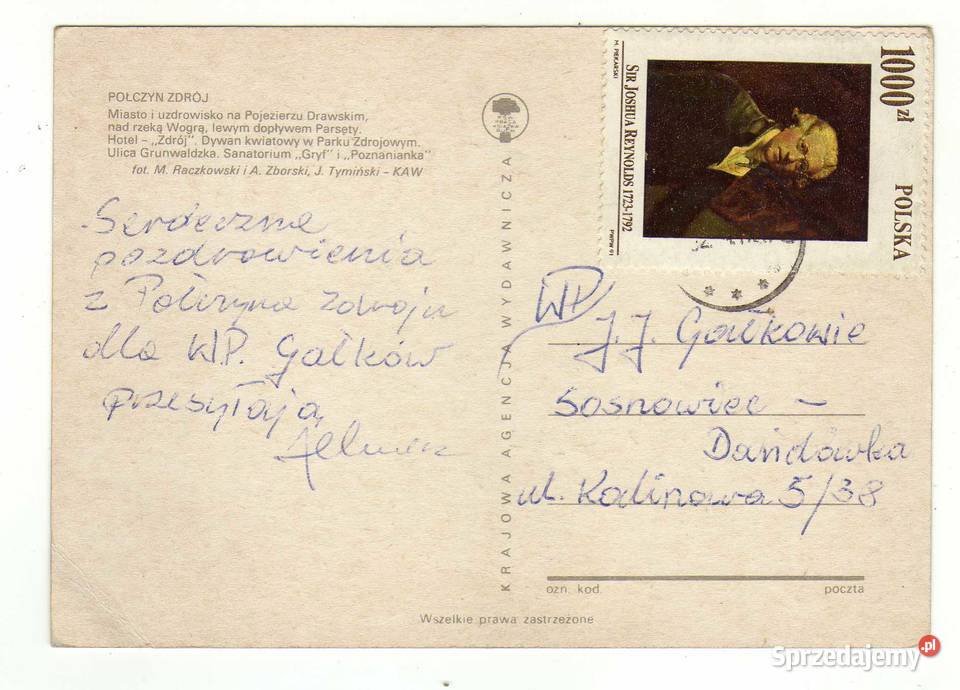 POŁCZYN ZDRÓJ
Miasto i uzdrowisko na Pojezierzu Drawskim,
nad rzeką Wogrą, lewym dopływem Parsęty.
Hotel – „Zdrój". Dywan kwiatowy w Parku Zdrojowym.
Ulica Grunwaldzka. Sanatorium „Gryf" i „Poznanianka"
fot. M. Raczkowski i A. Zborski, J. Tymiński – KAW
Serdeczne
pozdrowienia
z Połczyna Zdroju
dla W.P. Gałków
przesyłają
KRAJOWA AGENCJA WYDAWNICZA
1000 zł POLSKA
SIR JOSHUA REYNOLDS 1723-1792
M. PIEKARSKI
PWPW 91
WP
J.J. Gałkowie
Sosnowiec –
Dańdówka
ul. Kalinowa 5/38
ozn. kod poczta
Wszelkie prawa zastrzeżone
Sprzedajemy.pl